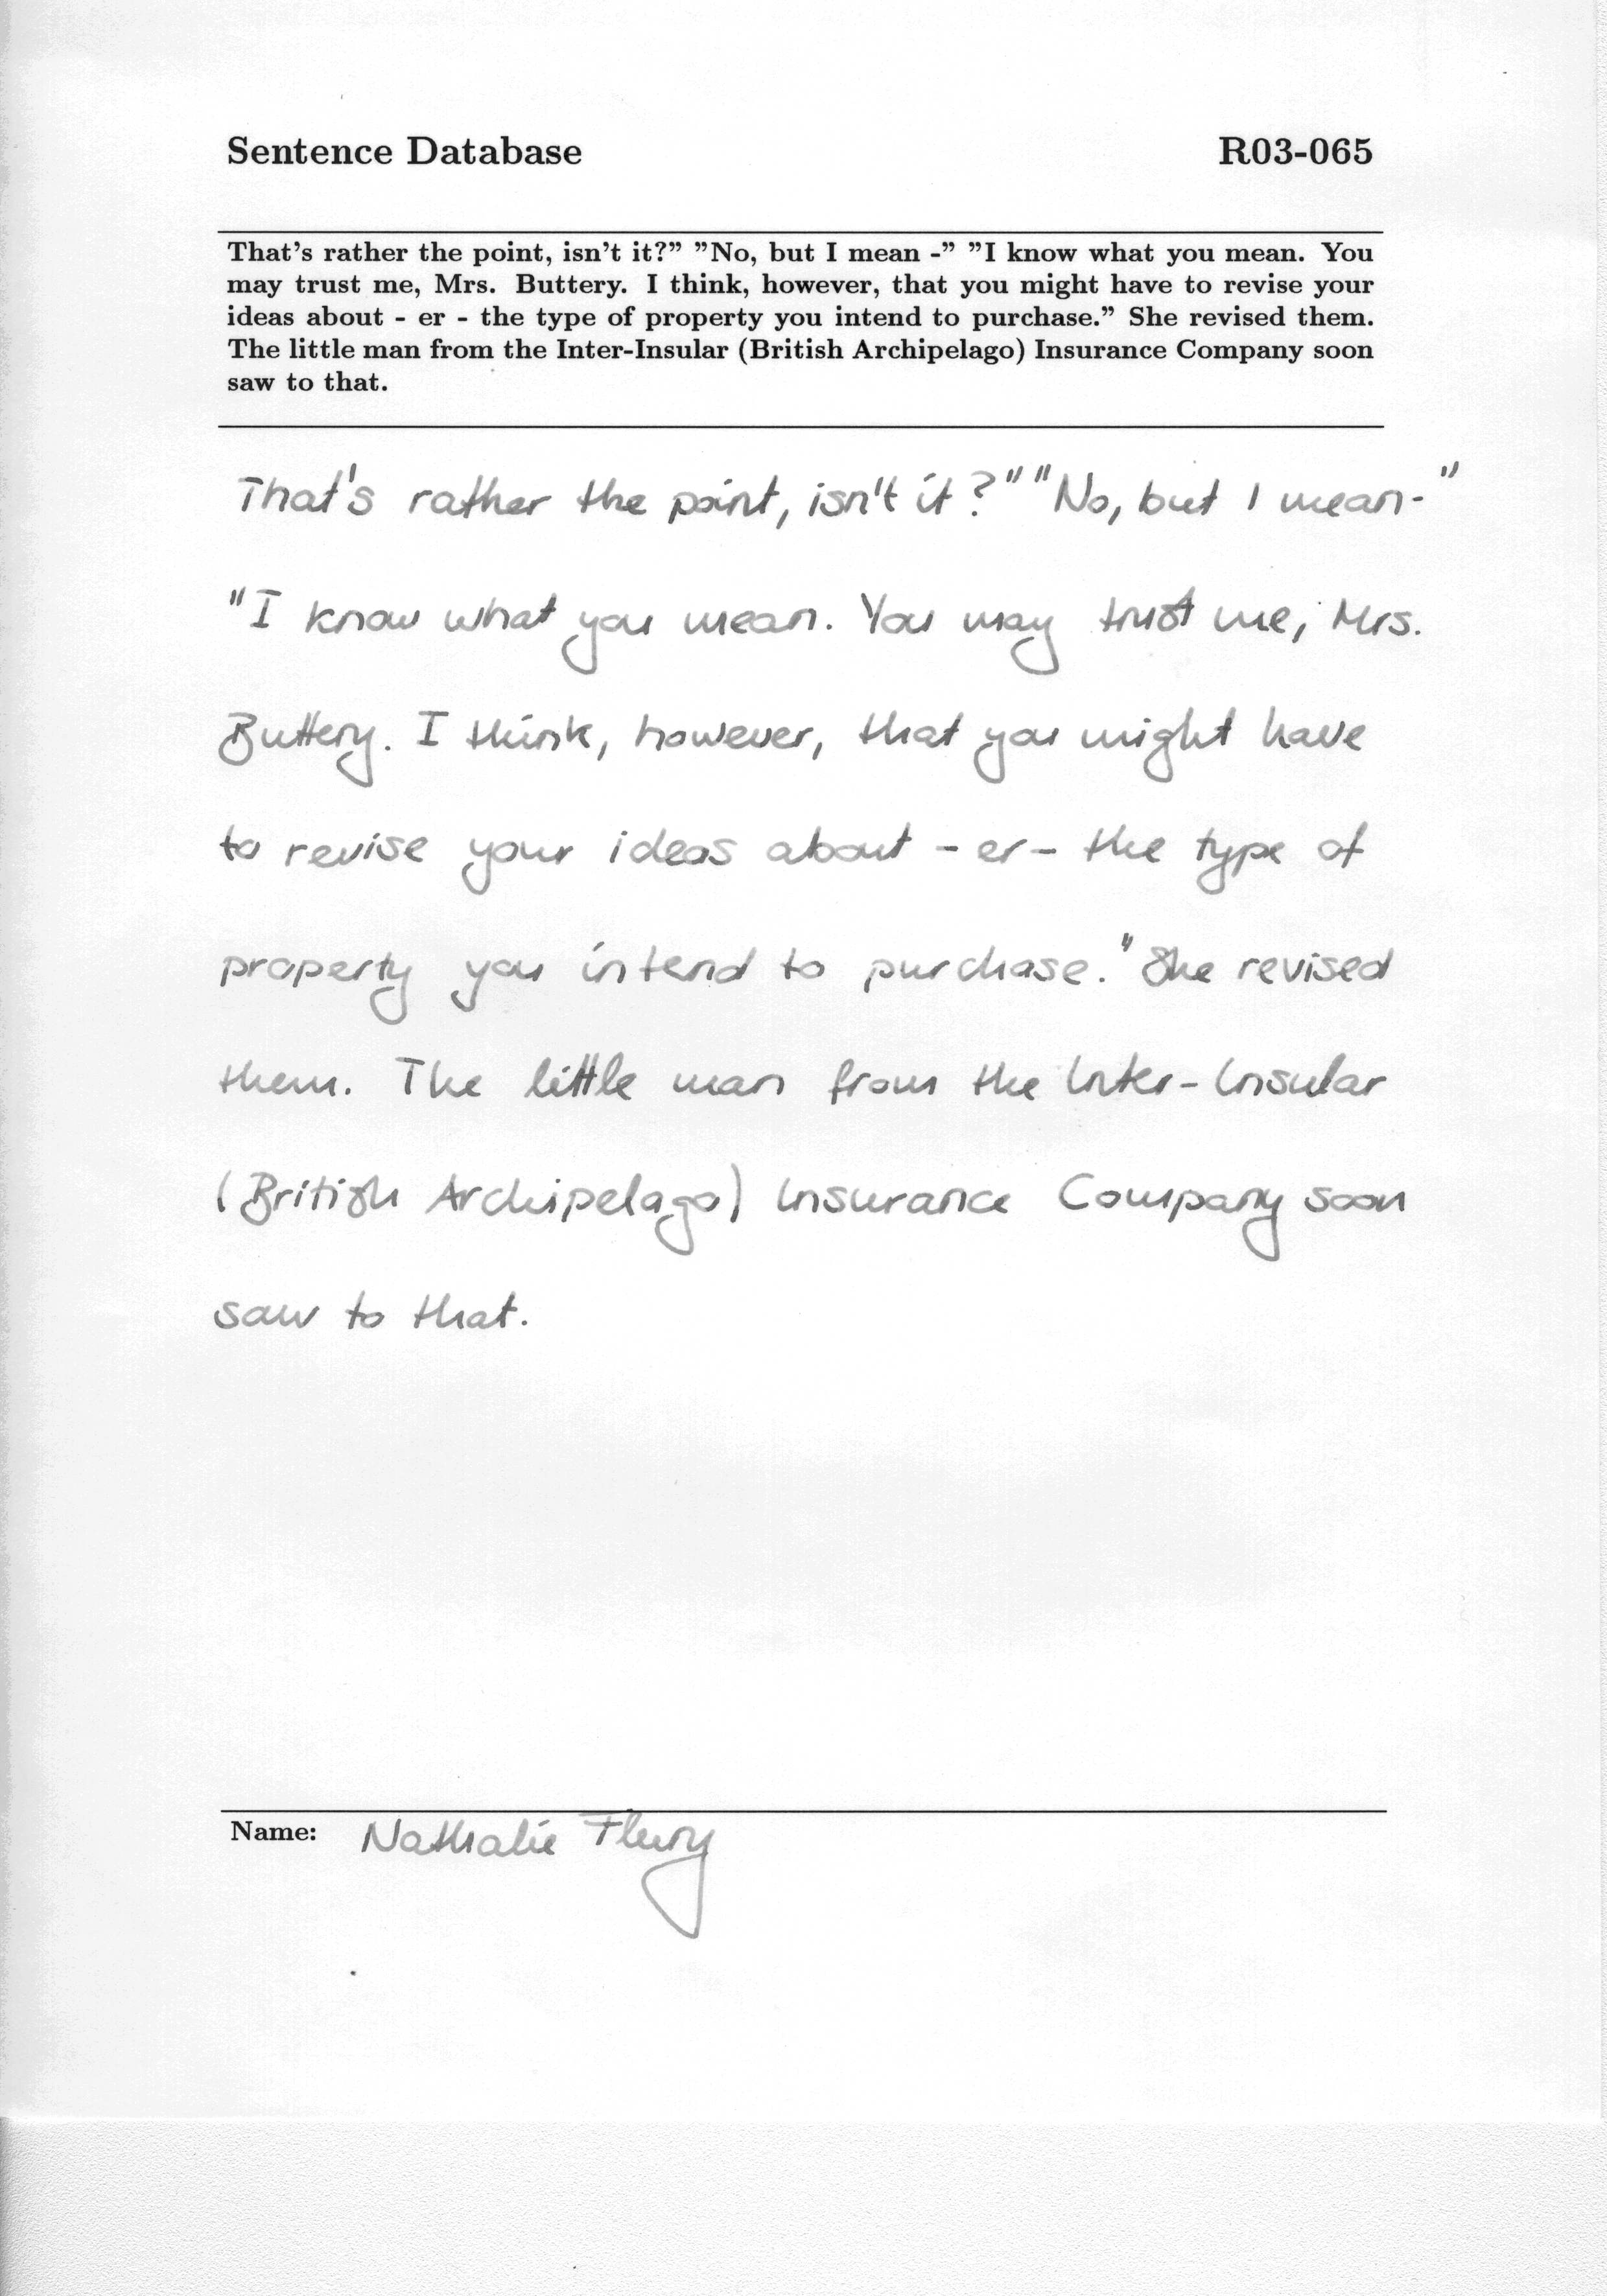 Sentence Database R03-065
That's rather the point, isn't it?” ”No, but I mean -” ”I know what you mean. You
may trust me, Mrs. Buttery. I think, however, that you might have to revise your
ideas about - er - the type of property you intend to purchase.” She revised them.
The little man from the Inter-Insular (British Archipelago) Insurance Company soon
saw to that.
That's rather the point, isn't it?" "No, but I mean-"
"I know what you mean. You may trust me, Mrs.
Buttery. I think, however, that you might have
to revise your ideas about - er - the type of
property you intend to purchase." She revised
them. The little man from the Inter-Insular
(British Archipelago) Insurance Company soon
saw to that.
Name: Nathalie Flury